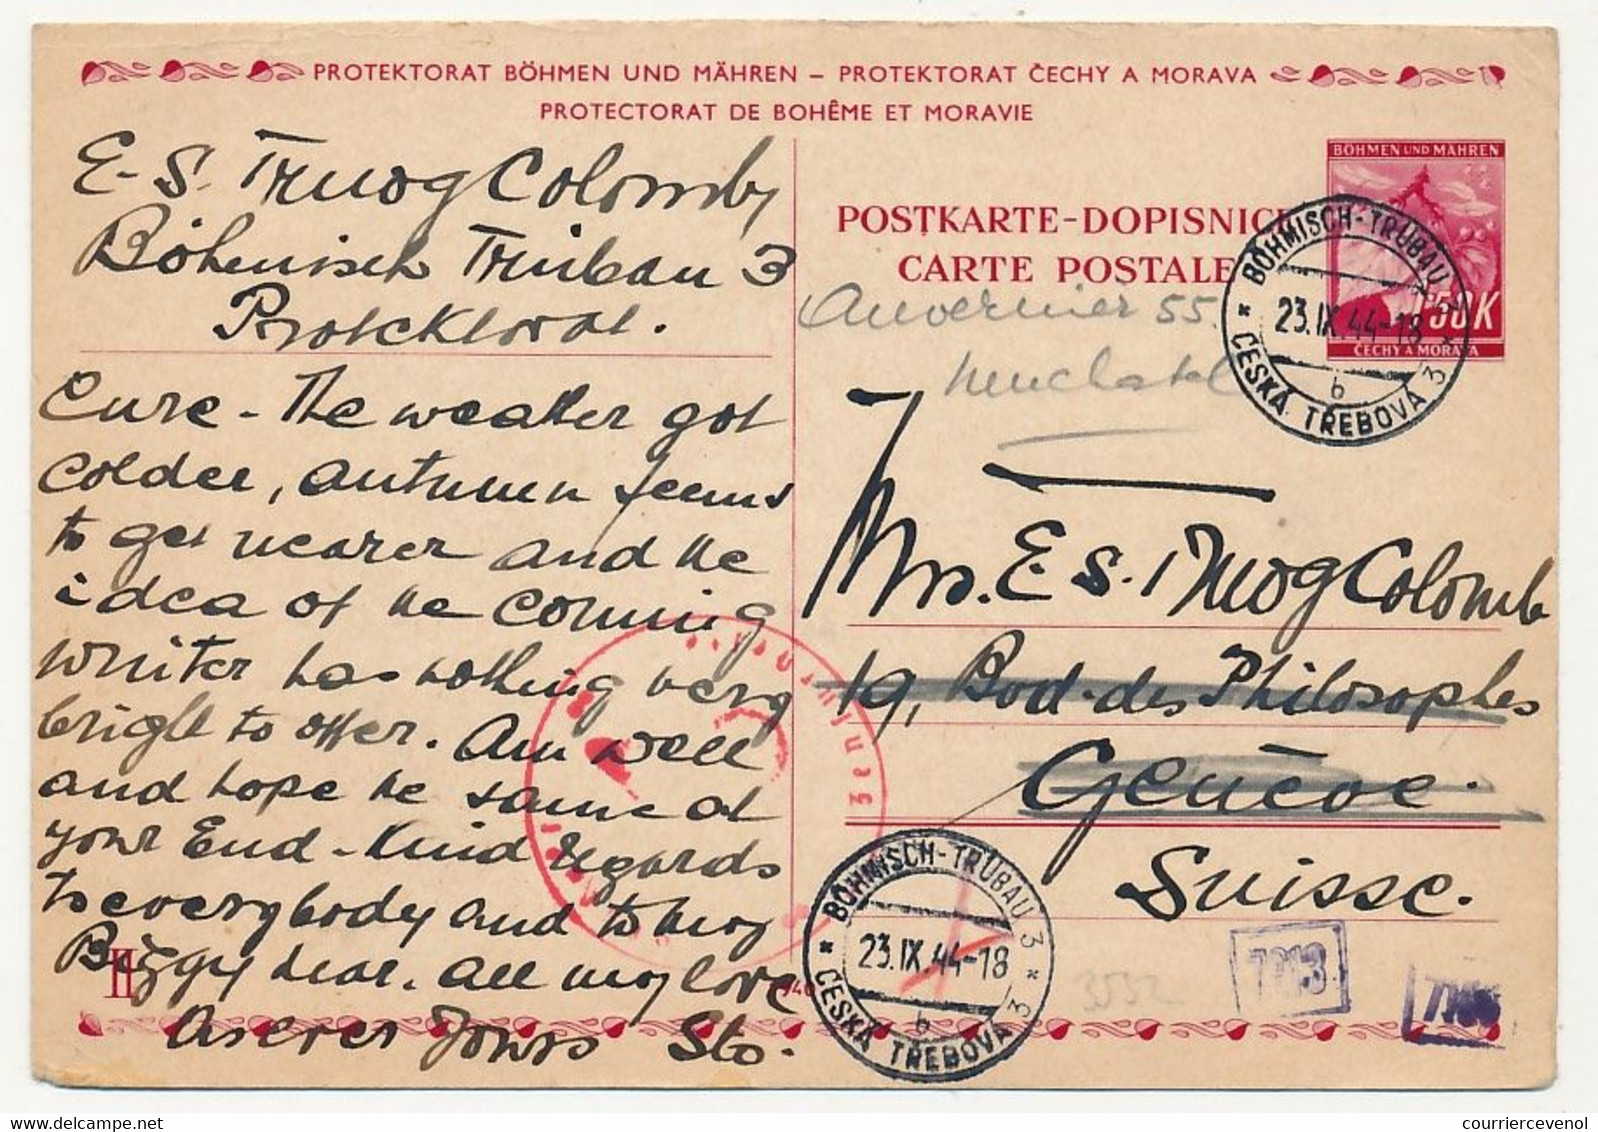 PROTEKTORAT BÖHMEN UND MÄHREN – PROTEKTORAT ČECHY A MORAVA
PROTECTORAT DE BOHÊME ET MORAVIE
E. S. Truog Colomby
Böhmisch Trübau 3
Protektorat.
cure - The weather got
colder, autumn seems
to get nearer and the
idea of the coming
winter has nothing very
bright to offer. Am well
and hope the same at
your End - Kind regards
to everybody and to my
Biggy dear. All my love
As ever Yours Sto.
II
BÖHMEN UND MÄHREN
POSTKARTE-DOPISNICE
CARTE POSTALE
50K
ČECHY A MORAVA
BÖHMISCH-TRÜBAU 3
23.IX.44-18
b
ČESKÁ TŘEBOVÁ 3
Auvernier 55.
Neuchatel
Mrs. E. S. Truog Colomb
19, Bvd. des Philosophes
Genève.
Suisse.
BÖHMISCH-TRÜBAU 3
23.IX.44-18
b
ČESKÁ TŘEBOVÁ 3
3552
7213
courriercevenol